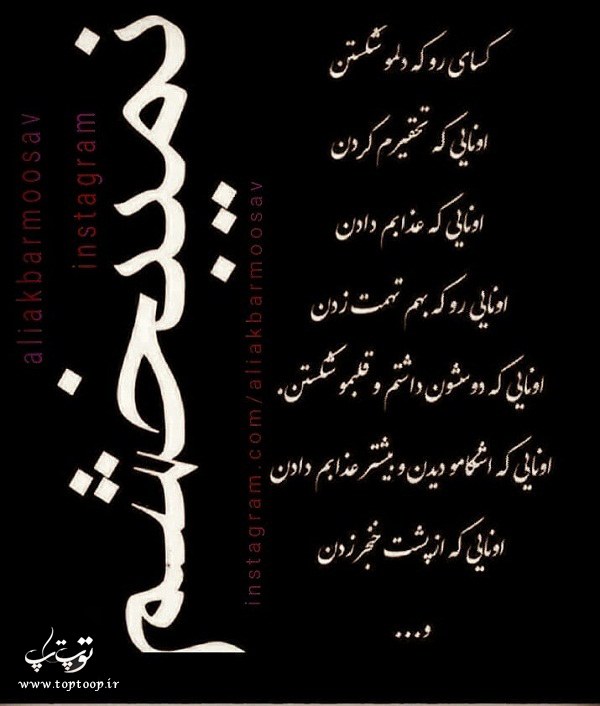 کسای رو که دلمو شکستن
اونایی که تحقیرم کردن
اونایی که عذابم دادن
اونایی رو که بهم تهمت زدن
اونایی که دوسشون داشتم و قلبمو شکستن.
اونایی که اشکامو دیدن و بیشتر عذابم دادن
اونایی که از پشت خنجر زدن
و...
نمیبخشم
aliakbarmoosav
instagram
instagram.com/aliakbarmoosav
توپ تاپ
www.toptoop.ir